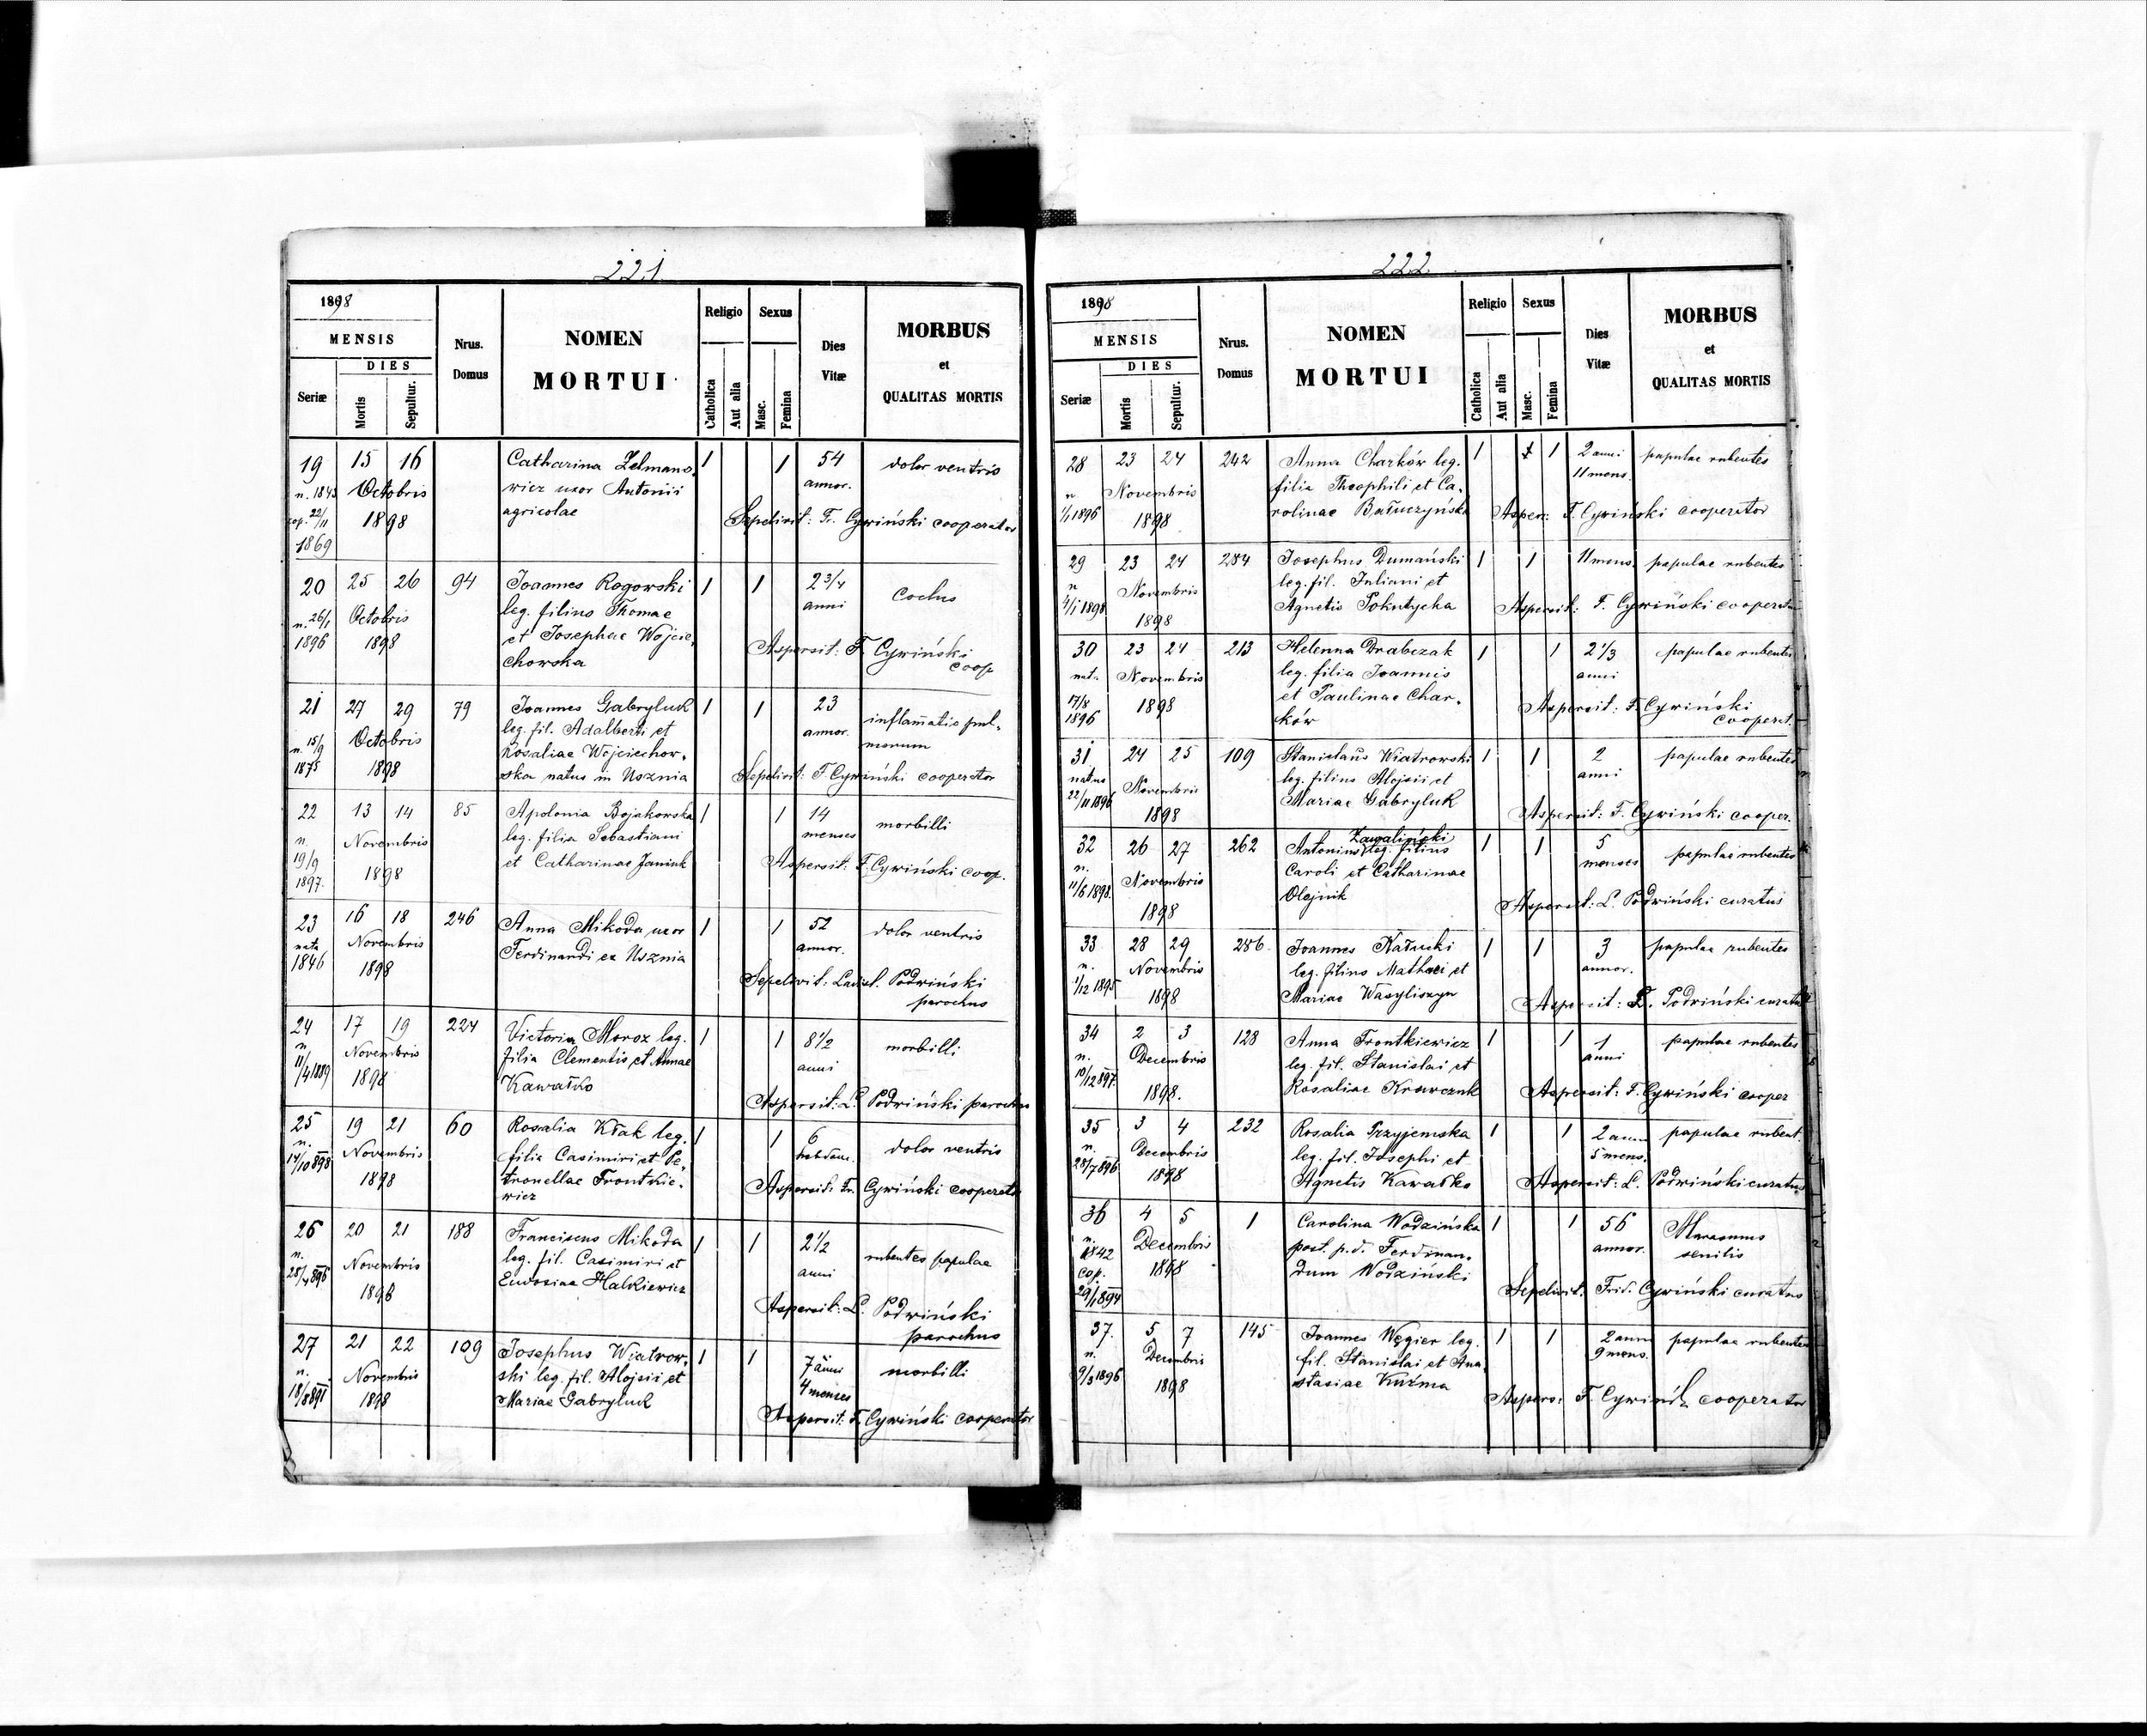 221
1898
MENSIS
DIES
Seriæ
Mortis
Sepultur.
Nrus.
Domus
NOMEN
MORTUI
Religio
Catholica
Aut alia
Sexus
Masc.
Femina
Dies
Vitæ
MORBUS
et
QUALITAS MORTIS
19 15 16 Catharina Zelmano- 1 1 54 dolor ventris
n. 1843 Octobris wicz uxor Antonii annor.
cop. 22/11 1898 agricolae Sepelivit: F. Cywiński cooperator
1869
20 25 26 94 Joannes Rogowski 1 1 2 3/4 Coclus
n. 26/1 Octobris leg. filius Thomae anni
1896 1898 et Josephae Wojcie- Aspersit: F. Cywiński
chowska coop
21 27 29 79 Joannes Gabryluk 1 1 23 inflamatio pul-
n. 15/9 Octobris leg. fil. Adalberti et annor. monum
1875 1898 Rosaliae Wojciechow-
ska natus in Usznia Sepelivit: F Cywiński cooperator
22 13 14 85 Apolonia Bojakowska 1 1 14 morbilli
n. Novembris leg. filia Sebastiani menses
19/9 1898 et Catharinae Janiuk Aspersit: F. Cywiński coop.
1897.
23 16 18 246 Anna Mikoda uxor 1 1 52 dolor ventris
nata Novembris Ferdinandi ex Usznia annor.
1846 1898 Sepelivit: Ladisl. Podwiński
parochus
24 17 19 224 Victoria Moroz leg. 1 1 8 1/2 morbilli
n. Novembris filia Clementis et Annae anni
11/4 1889 1898 Kawałko Aspersit: L. Podwiński parochus
25 19 21 60 Rosalia Kłak leg. 1 1 6 dolor ventris
n. Novembris filia Casimiri et Pe- hebdom.
14/10 898 1898 tronellae Frontkie- Aspersit: Fr. Cywiński cooperator
wicz
26 20 21 188 Franciscus Mikoda 1 1 2 1/2 rubentes papulae
n. Novembris leg. fil. Casimiri et anni
28/4 896 1898 Eudosiae Halkiewicz Aspersit: L. Podwiński
parochus
27 21 22 109 Josephus Wiatrow- 1 1 7 anni morbilli
n. Novembris ski leg. fil. Alojsii et 4 menses
18/7 891 1898 Mariae Gabryluk Aspersit: F. Cywiński cooperator
222
1898
MENSIS
DIES
Seriæ
Mortis
Sepultur.
Nrus.
Domus
NOMEN
MORTUI
Religio
Catholica
Aut alia
Sexus
Masc.
Femina
Dies
Vitæ
MORBUS
et
QUALITAS MORTIS
28 23 24 242 Anna Charków leg. 1 1 2 anni papulae rubentes
n. Novembris filia Theophili et Ca- 11 mens.
1/1 1896 1898 rolinae Bałuczyńska Asper: F. Cywiński cooperator
29 23 24 284 Josephus Dumański 1 1 11 mens. papulae rubentes
n Novembris leg. fil. Juliani et
4/1 1898 1898 Agnetis Pokutycka Aspersit: F. Cywiński cooperator
30 23 24 213 Helenna Drabczak 1 1 2 1/3 papulae rubentes
nat. Novembris leg. filia Joannis anni
17/8 1898 et Paulinae Char- Aspersit: F. Cywiński
1896 ków cooperat.
31 24 25 109 Stanislaus Wiatrowski 1 1 2 papulae rubentes
natus Novembris leg. filius Alojsii et anni
22/11 1896 1898 Mariae Gabryluk Aspersit: F. Cywiński cooper.
Zawaliński
32 26 27 262 Antonius leg. filius 1 1 5 papulae rubentes
n. Novembris Caroli et Catharinae menses
11/6 1898. 1898 Olejnik Aspersit: L. Podwiński curatus
33 28 29 286 Joannes Kałucki 1 1 3 papulae rubentes
n. Novembris leg. filius Mathaei et annor.
1/12 1895 1898 Mariae Wasyliszyn Aspersit: L. Podwiński curatus
34 2 3 128 Anna Frontkiewicz 1 1 1 papulae rubentes
n. Decembris leg. fil. Stanislai et anni
10/12 897. 1898. Rosaliae Krawczuk Aspersit: F. Cywiński cooper
35 3 4 232 Rosalia Przyjemska 1 1 2 anni papulae rubent.
n. Decembris leg. fil. Josephi et 5 mens.
28/7 896 1898 Agnetis Kawałko Aspersit: L. Podwiński curatus
36 4 5 1 Carolina Wodzińska 1 1 56 Marasmus
n. 1842 Decembris post. p.d. Ferdinan- annor. senilis
cop. 1898 dum Wodziński Sepelivit: Frid. Cywiński curatus
29/1 894
37. 5 7 145 Joannes Węgier leg. 1 1 2 anni papulae rubentes
n. Decembris fil. Stanislai et Ana- 9 mens.
9/3 1896 1898 stasiae Kuźma Aspers: F. Cywińsk cooperator